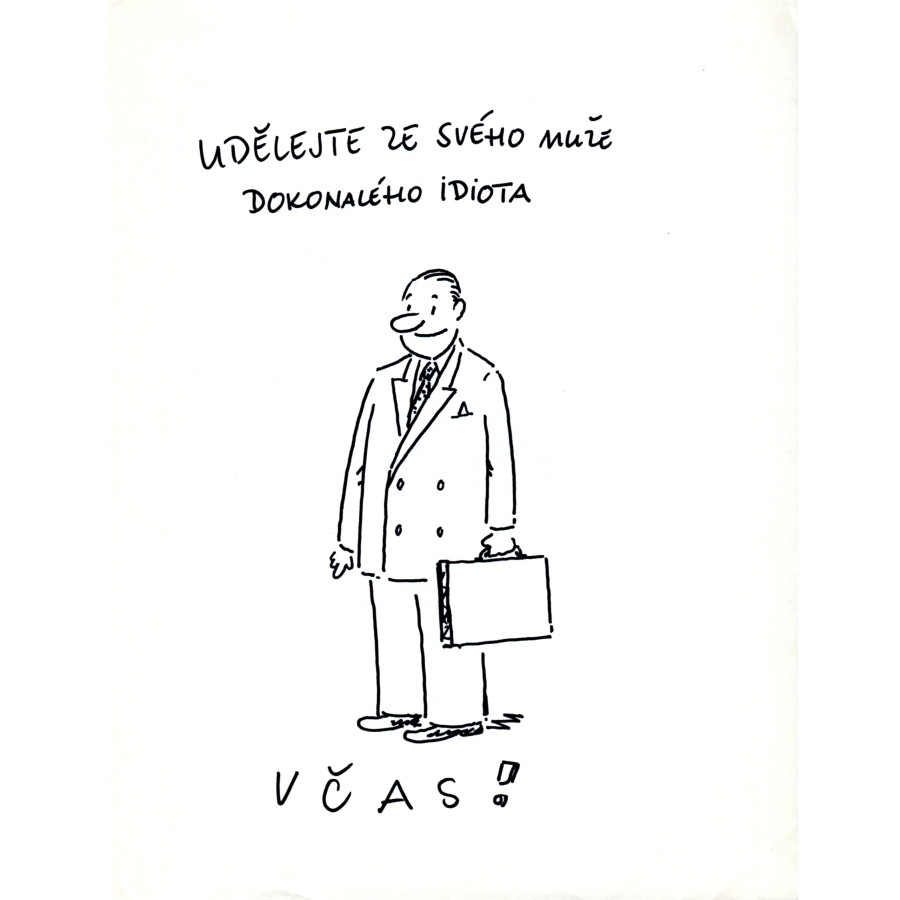 UDĚLEJTE ZE SVÉHO MUŽE
DOKONALÉHO IDIOTA
VČAS!